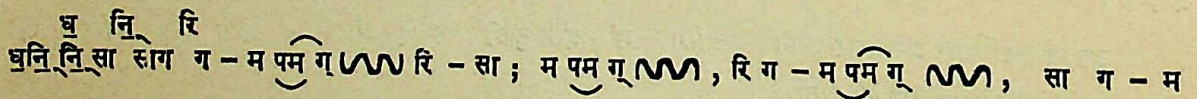 ध॒ नि्॒॒ रि
ध॒नि्॒॒नि्॒॒सा साग ग – म पम ग् रि – सा ; म पम ग् , रि ग – म पम ग् , सा ग – म